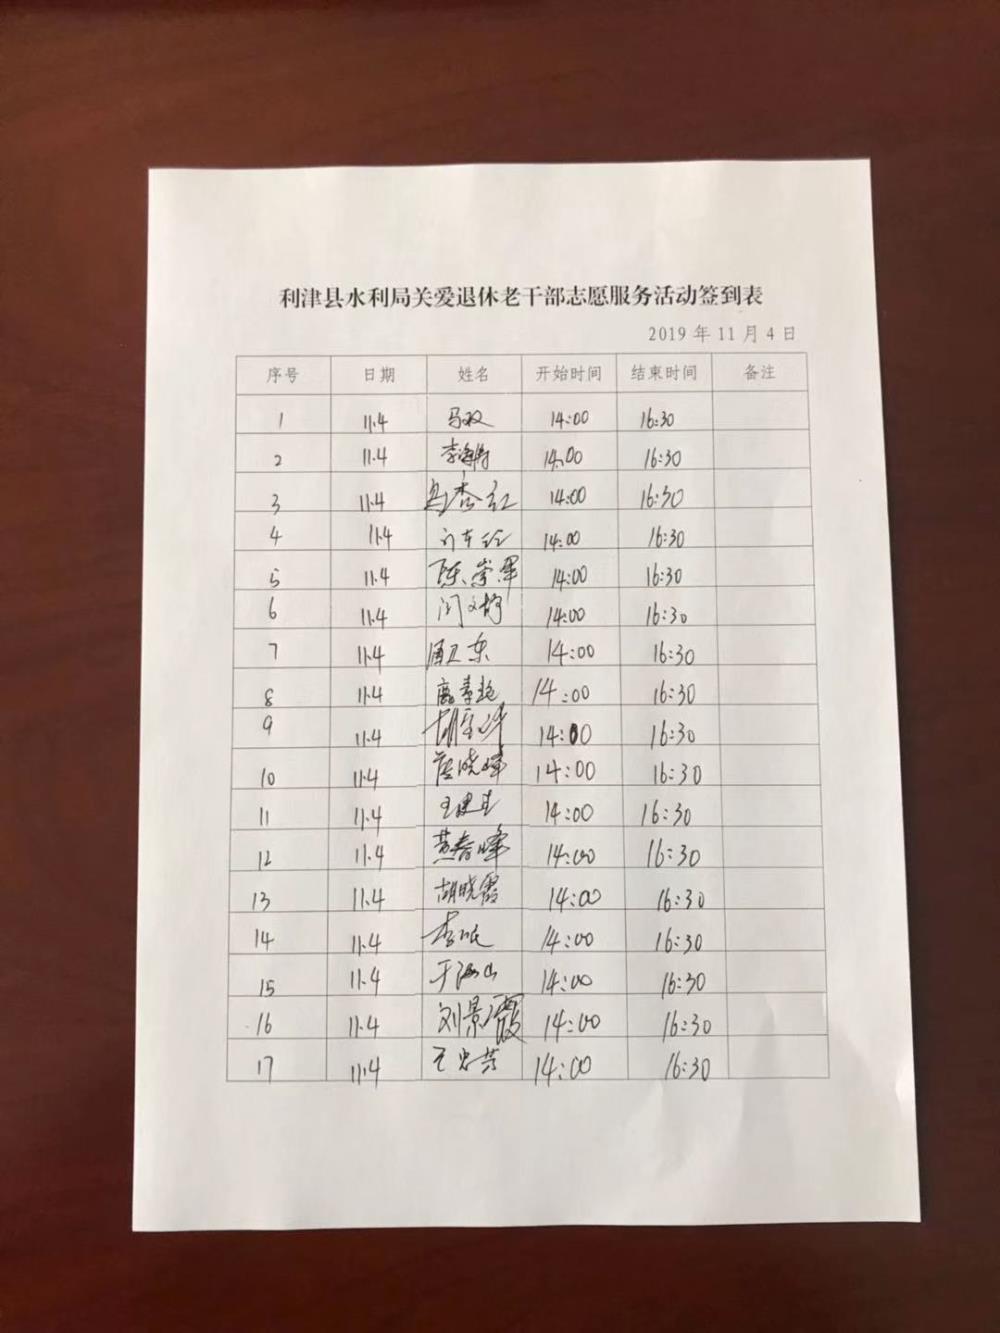 利津县水利局关爱退休老干部志愿服务活动签到表
2019 年 11 月 4 日
序号 日期 姓名 开始时间 结束时间 备注
1 11.4 马双 14:00 16:30
2 11.4 李海涛 14:00 16:30
3 11.4 14:00 16:30
4 11.4 14:00 16:30
5 11.4 陈崇军 14:00 16:30
6 11.4 14:00 16:30
7 11.4 14:00 16:30
8 11.4 14:00 16:30
9 11.4 14:00 16:30
10 11.4 14:00 16:30
11 11.4 14:00 16:30
12 11.4 黄春峰 14:00 16:30
13 11.4 胡晓霞 14:00 16:30
14 11.4 14:00 16:30
15 11.4 于海山 14:00 16:30
16 11.4 刘景霞 14:00 16:30
17 11.4 14:00 16:30